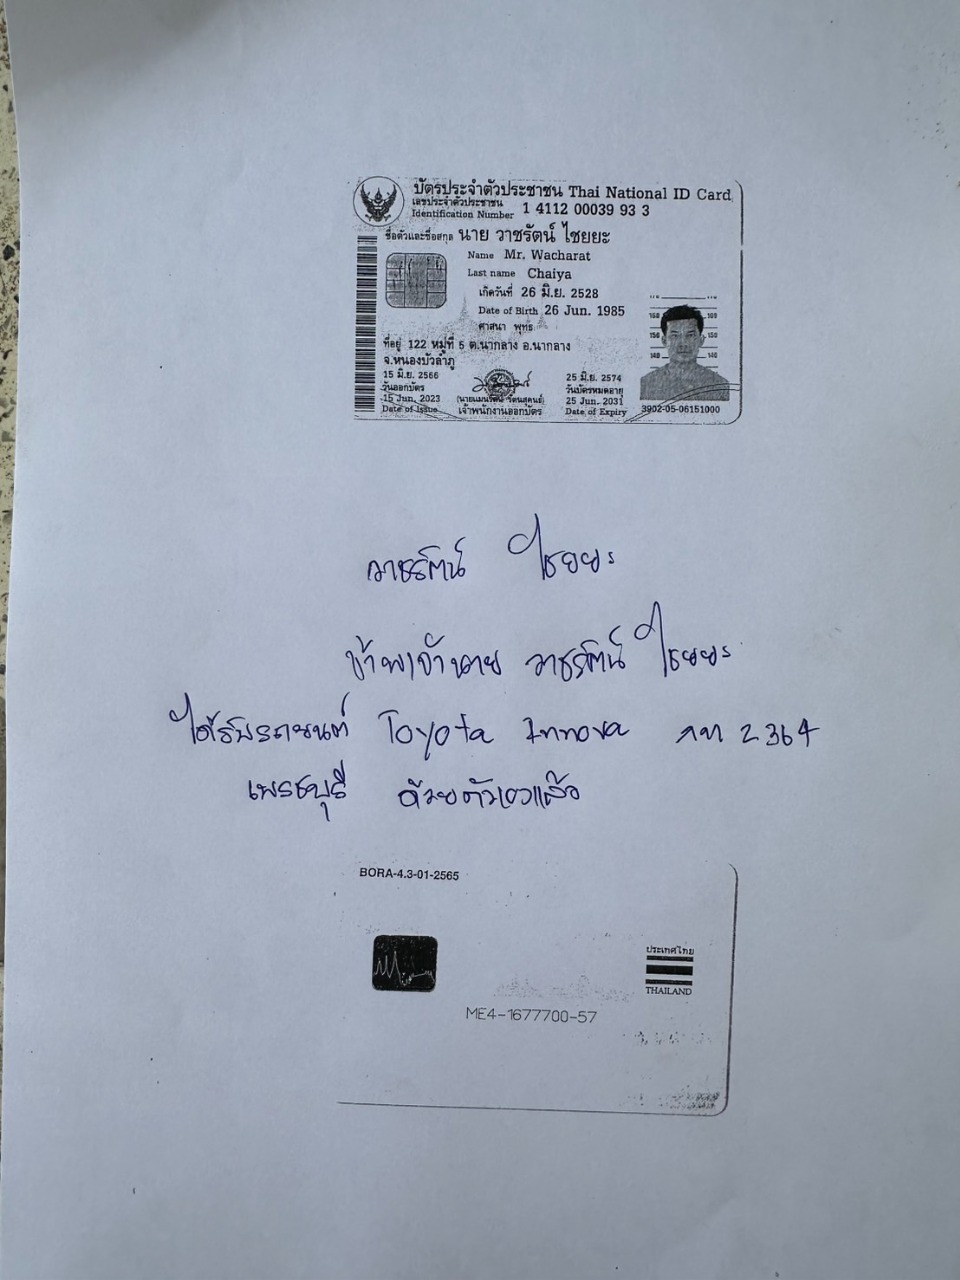 บัตรประจำตัวประชาชน Thai National ID Card
เลขประจำตัวประชาชน
Identification Number 1 4112 00039 93 3
ชื่อตัวและชื่อสกุล นาย วาชรัตน์ ไชยยะ
Name Mr. Wacharat
Last name Chaiya
เกิดวันที่ 26 มิ.ย. 2528
Date of Birth 26 Jun. 1985
ศาสนา พุทธ
ที่อยู่ 122 หมู่ที่ 5 ต.นากลาง อ.นากลาง
จ.หนองบัวลำภู
15 มิ.ย. 2566
วันออกบัตร
15 Jun. 2023
Date of Issue
เจ้าพนักงานออกบัตร
25 มิ.ย. 2574
วันบัตรหมดอายุ
25 Jun. 2031
Date of Expiry
160 160
150 150
140 140
3902-05-06151000
วาชรัตน์ ไชยยะ
ข้าพเจ้านาย วาชรัตน์ ไชยยะ
ได้รับรถยนต์ Toyota Innova กท 2364
เพชรบุรี ด้วยตัวเองแล้ว
BORA-4.3-01-2565
ประเทศไทย
THAILAND
ME4-1677700-57